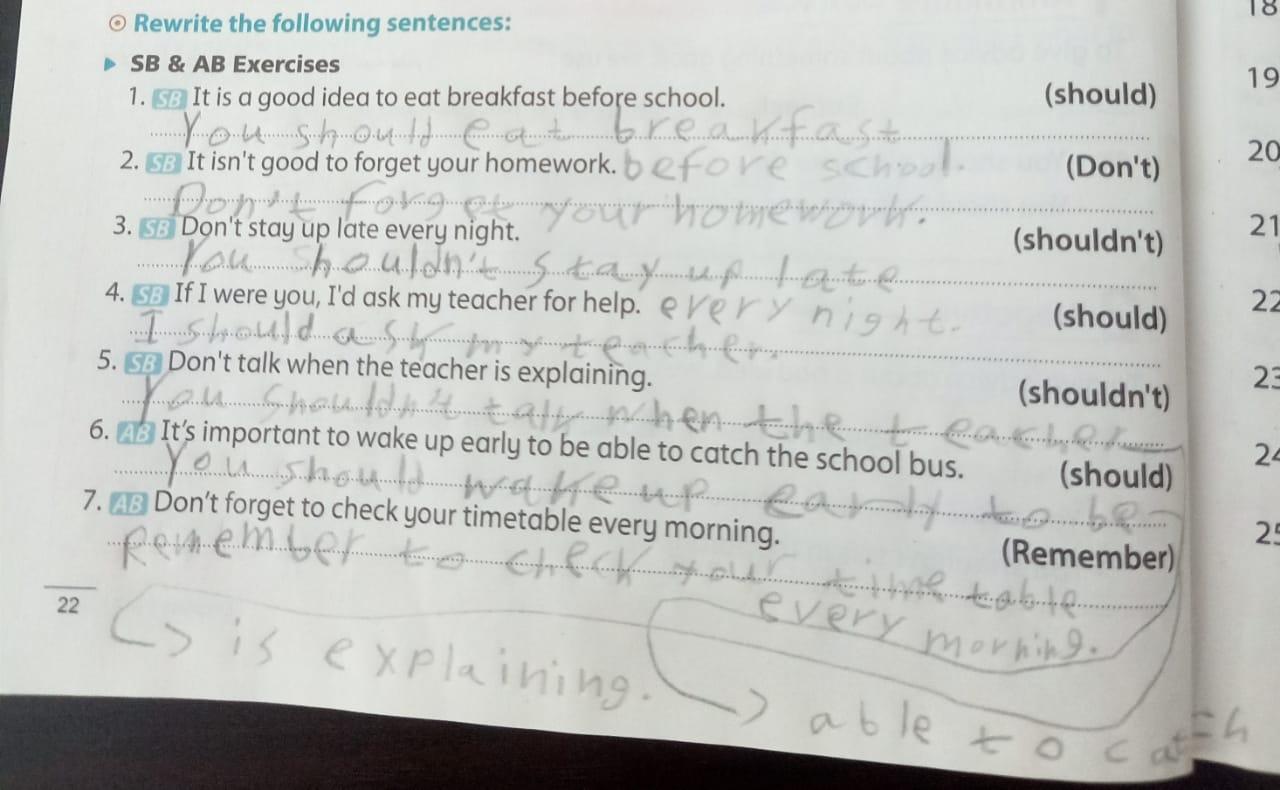 Rewrite the following sentences:
SB & AB Exercises
1. SB It is a good idea to eat breakfast before school. (should)
You should eat breakfast
before school.
2. SB It isn't good to forget your homework. (Don't)
Don't forget your homework.
3. SB Don't stay up late every night. (shouldn't)
You shouldn't stay up late
every night.
4. SB If I were you, I'd ask my teacher for help. (should)
I should ask my teacher.
5. SB Don't talk when the teacher is explaining. (shouldn't)
You shouldn't talk when the teacher
6. AB It's important to wake up early to be able to catch the school bus. (should)
You should wake up early to be
7. AB Don't forget to check your timetable every morning. (Remember)
Remember to check your time table
every morning.
22
is explaining.
able to catch
18
19
20
21
22
23
24
25